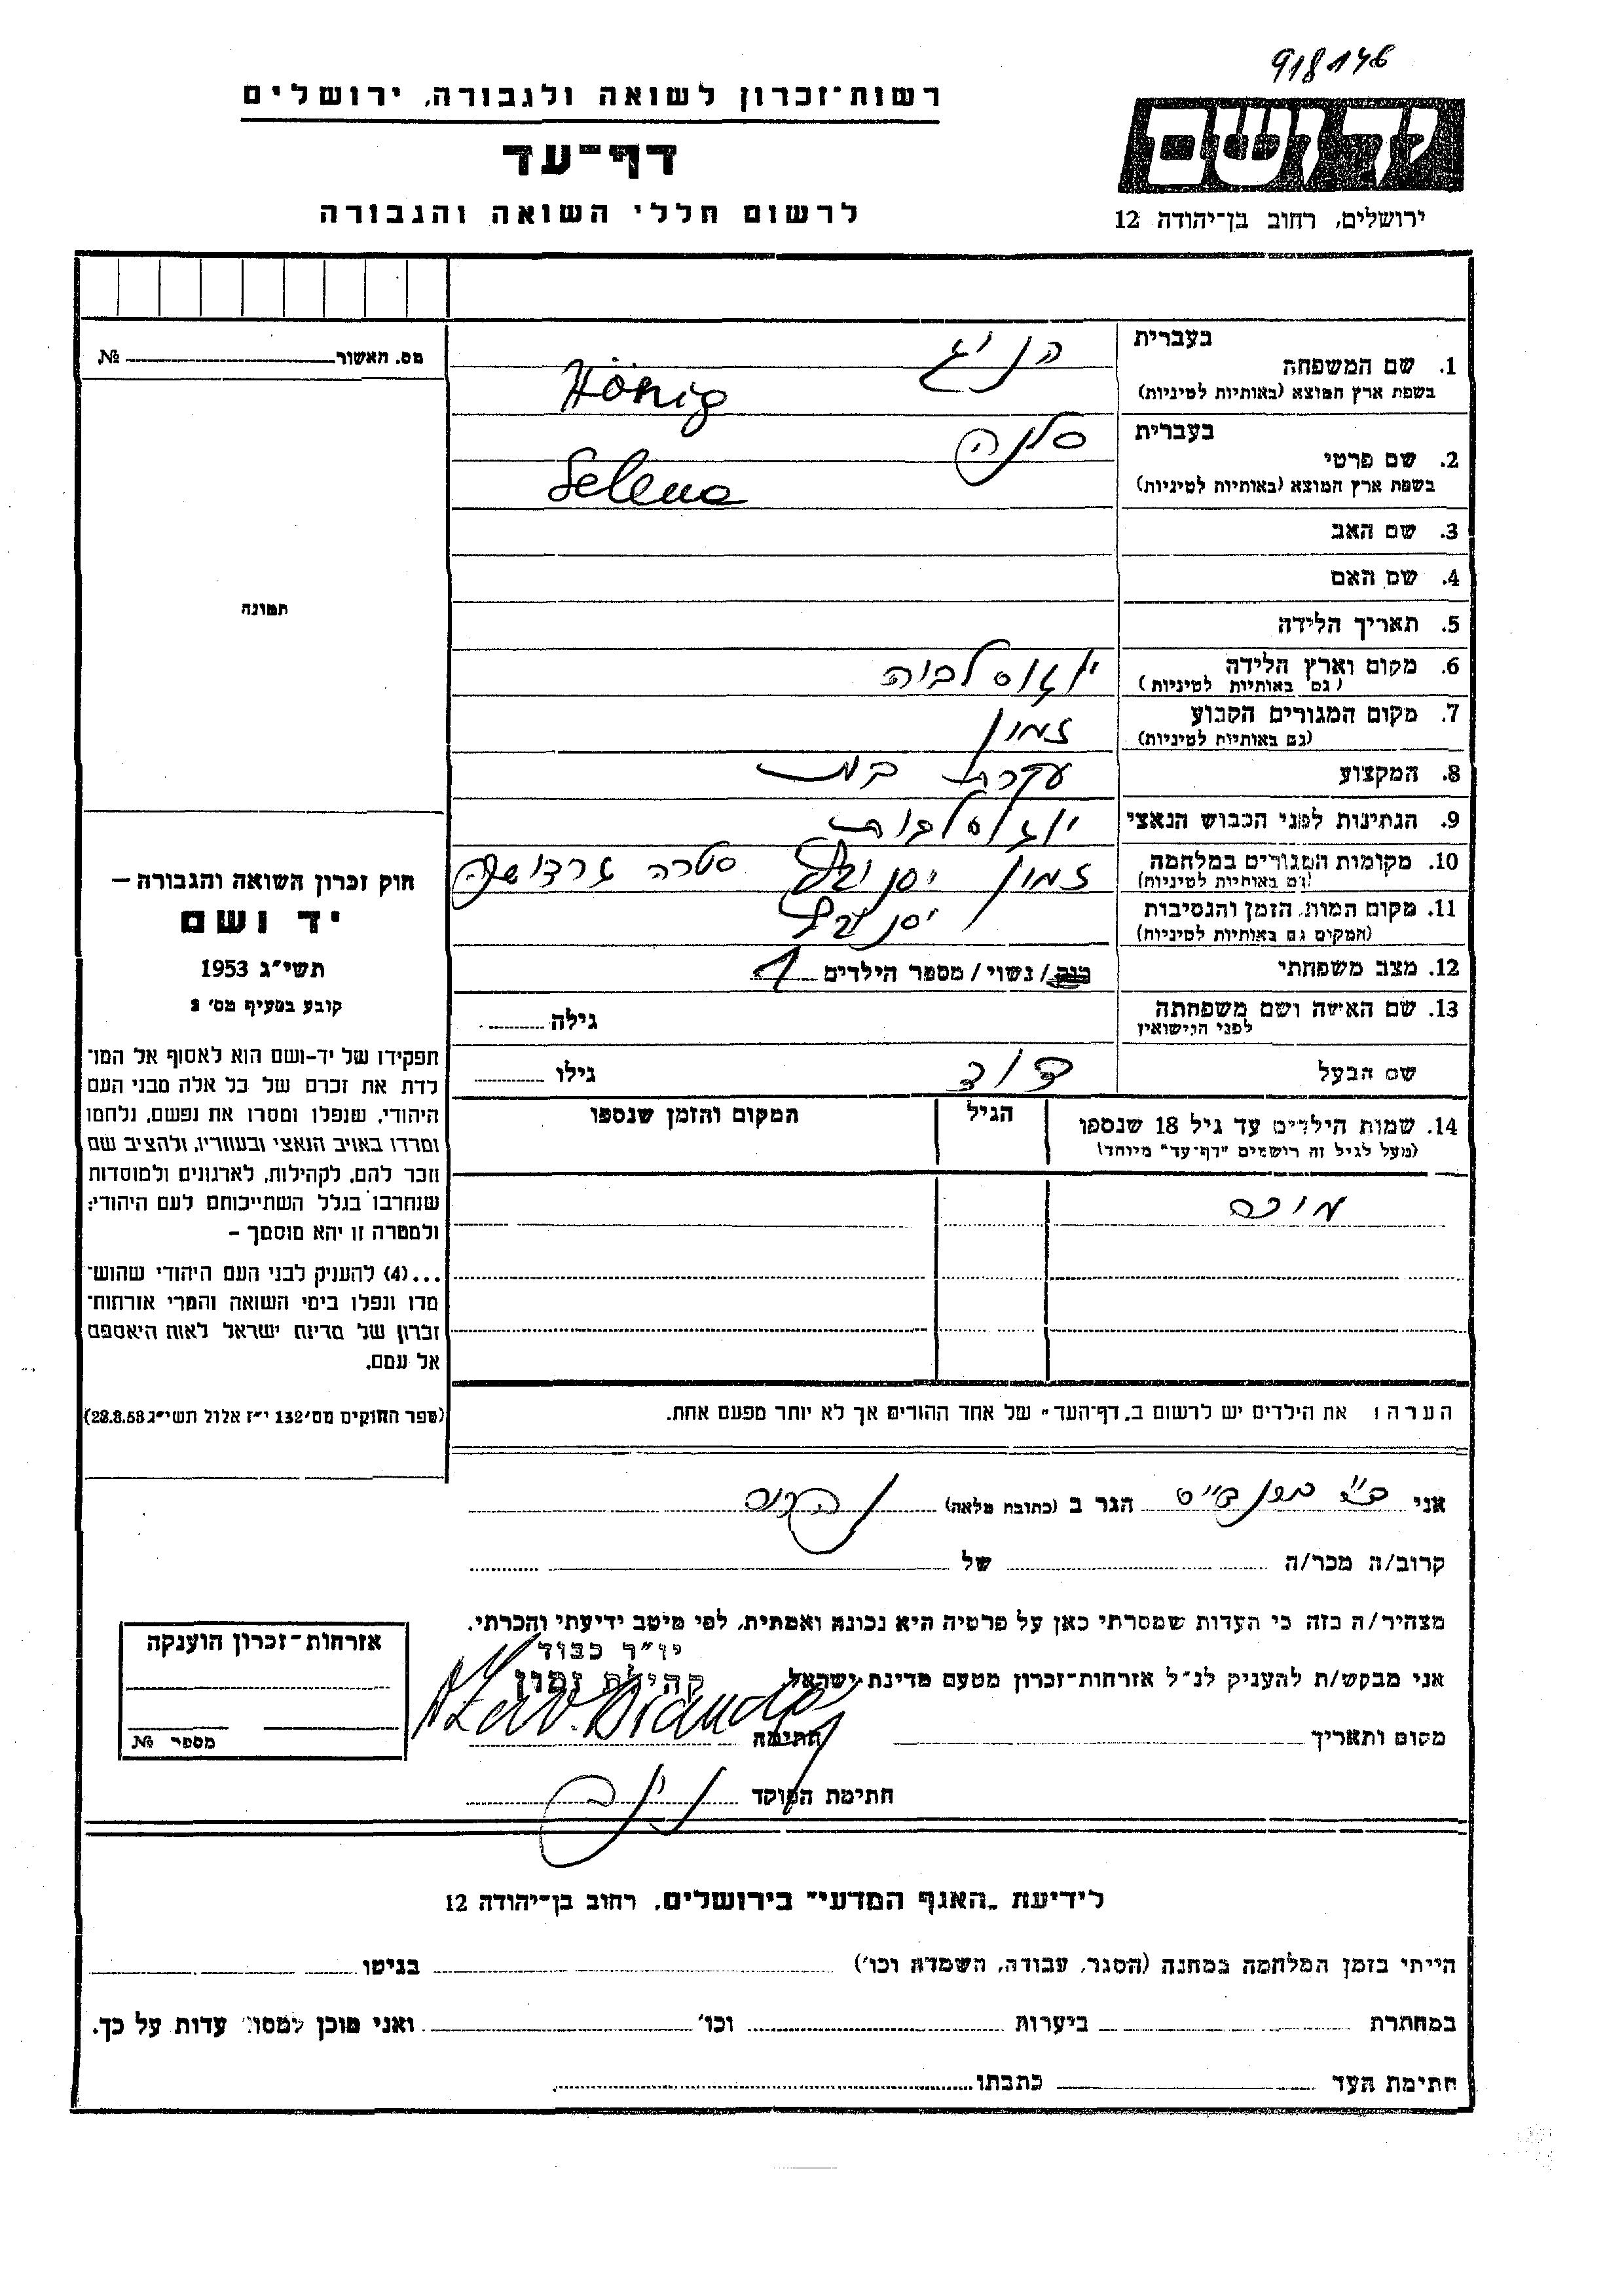 918146
רשות־זכרון לשואה ולגבורה, ירושלים
דף־עד
לרשום חללי השואה והגבורה
יד ושם
ירושלים, רחוב בן־יהודה 12
מס. האשור № 
תמונה
חוק זכרון השואה והגבורה —
יד ושם
תשי״ג 1953
קובע בסעיף מס׳ 2
תפקידו של יד-ושם הוא לאסוף אל המו־
לדת את זכרם של כל אלה מבני העם
היהודי, שנפלו ומסרו את נפשם, נלחמו
ומרדו באויב הנאצי ובעוזריו, ולהציב שם
וזכר להם, לקהילות, לארגונים ולמוסדות
שנחרבו בגלל השתייכותם לעם היהודי;
ולמטרה זו יהא מוסמך —
...(4) להעניק לבני העם היהודי שהוש־
מדו ונפלו בימי השואה והמרי אזרחות־
זכרון של מדינת ישראל לאות היאספם
אל עמם.
(ספר החוקים מס׳ 132 י״ז אלול תשי״ג 28.8.53)
בעברית
הניג
1. שם המשפחה
בשפת ארץ המוצא (באותיות לטיניות)
Hönig
בעברית
סלנה
2. שם פרטי
בשפת ארץ המוצא (באותיות לטיניות)
Selena
3. שם האב
4. שם האם
5. תאריך הלידה
6. מקום וארץ הלידה
(גם באותיות לטיניות)
יוגוסלביה
7. מקום המגורים הקבוע
(גם באותיות לטיניות)
זמון
8. המקצוע
עקרת בית
9. הנתינות לפני הכבוש הנאצי
יוגוסלבית
10. מקומות המגורים במלחמה
(גם באותיות לטיניות)
זמון יסנובץ סטרה גרדושקה
11. מקום המות, הזמן והנסיבות
(המקום גם באותיות לטיניות)
יסנובץ
12. מצב משפחתי
רוק / נשוי / מספר הילדים 1
13. שם האשה ושם משפחתה
לפני הנישואין
גילה
שם הבעל
דוד
גילו
14. שמות הילדים עד גיל 18 שנספו
(מעל לגיל זה רושמים "דף־עד" מיוחד)
הגיל
המקום והזמן שנספו
הערה: את הילדים יש לרשום ב"דף־העד" של אחד ההורים אך לא יותר מפעם אחת.
אני
הגר ב (כתובת מלאה)
קרוב/ה מכר/ה של
מצהיר/ה בזה כי העדות שמסרתי כאן על פרטיה היא נכונה ואמתית, לפי מיטב ידיעתי והכרתי.
יו״ר כבוד
קהילת זמון
אני מבקש/ת להעניק לנ״ל אזרחות־זכרון מטעם מדינת ישראל.
מקום ותאריך
חתימה
חתימת הפוקד
אזרחות־זכרון הוענקה
מספר №
לידיעת "האגף המדעי" בירושלים, רחוב בן־יהודה 12
הייתי בזמן המלחמה במחנה (הסגר, עבודה, השמדה וכו׳) בגיטו
במחתרת ביערות וכו׳ ואני מוכן למסור עדות על כך.
חתימת העד כתבתו